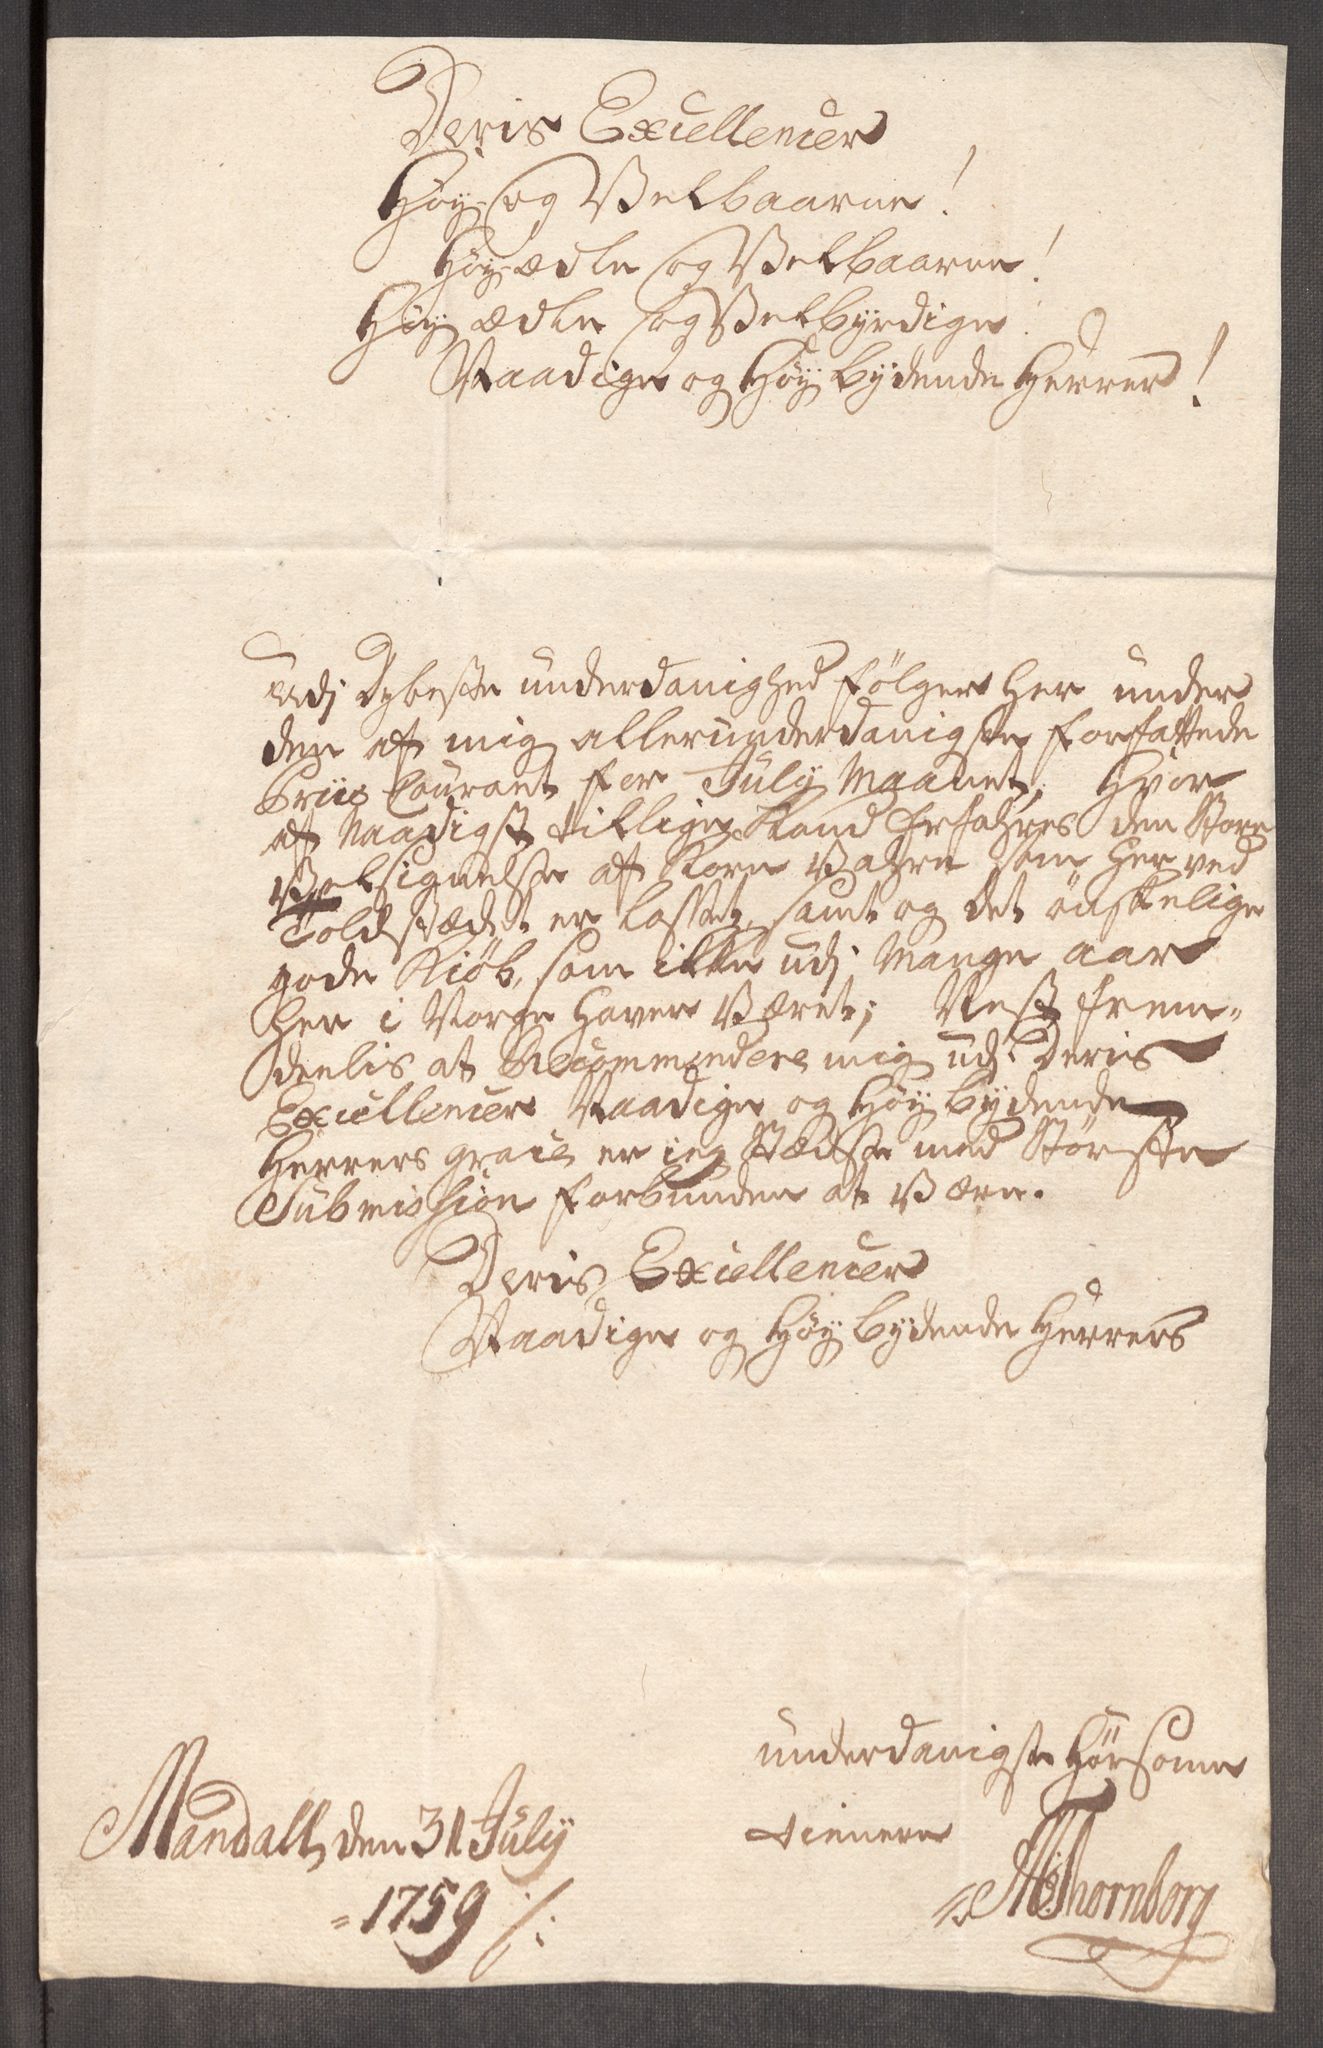 Deris Excellencer
Høy- og Velbaarne!
Høy-ædle og Velbaarne!
Høy ædle og Velbyrdige
Naadige og Høy bydende Herrer!
Udj Dybeste underdanighed følger her under
den af mig allerunderdanigste forfattede
Priis Courant for July Maanet, hvor
af Naadigst tillige kand Erfahres den Store
Velsignelse af Korn Vahre som her ved
Toldstædet er losset, samt og det önskelige
gode Kiöb, som ikke udj mange aar
her i Norge haver Været; Nest frem-
deelis at Recommendere mig udj Deris
Excellencer Naadige og Høy bydende
Herrers grace, er ieg stædse med Störste
Submission forbunden at Være.
Deris Excellencer
Naadige og Høy bydende Herrers
underdanigste Hørsomme
tienere
Mandall, den 31 July
= 1759 ./.
Thornborg